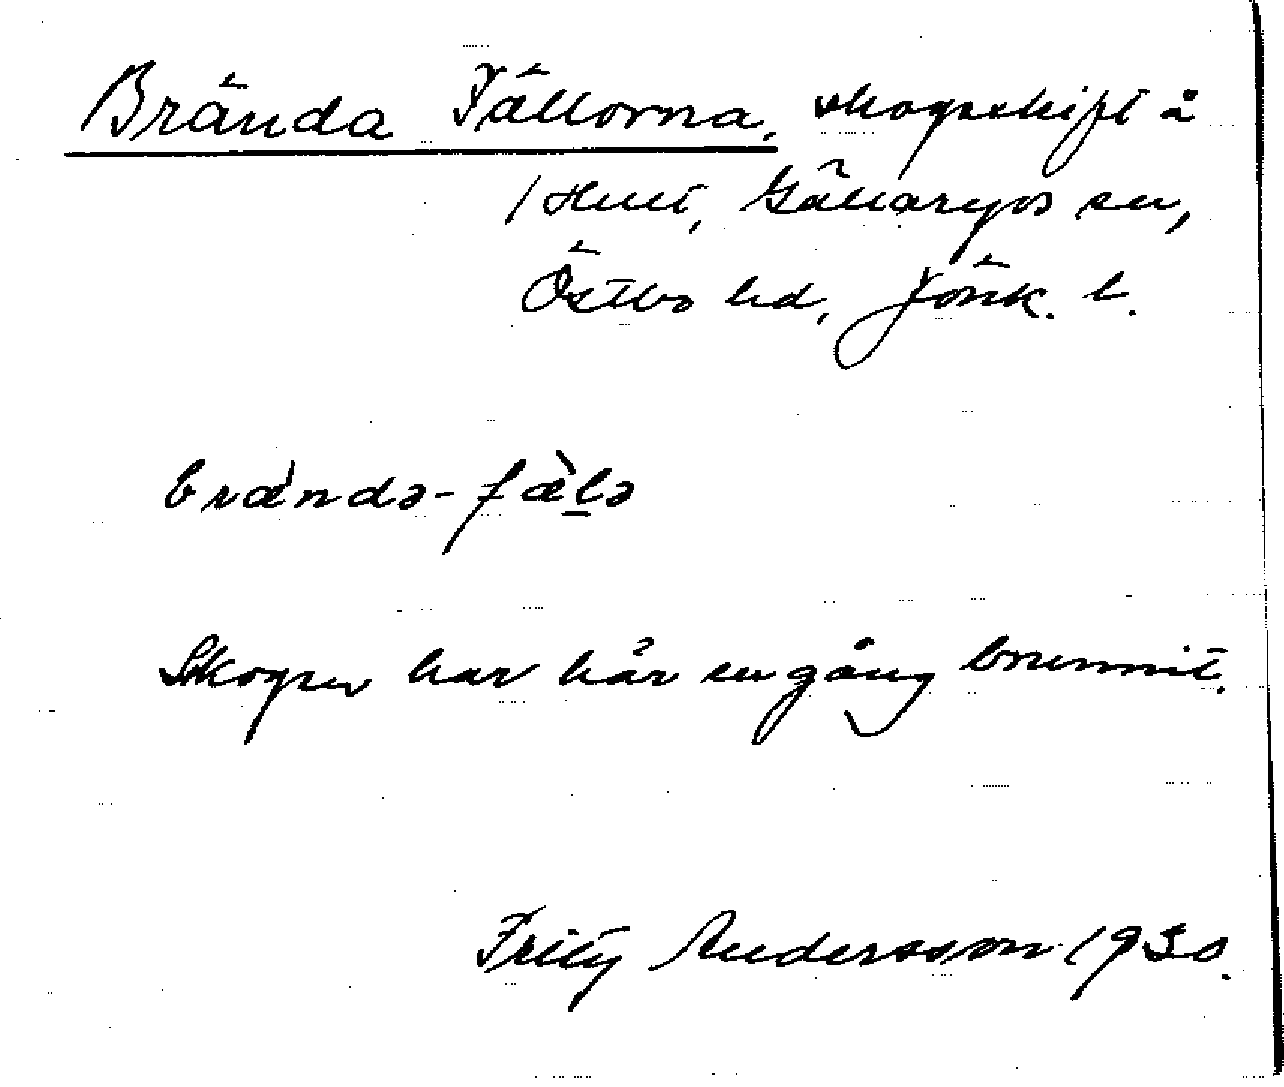 Brända Fällorna, skogsskift å
1 Hult, Gällaryds sn,
Östbo hd, Jönk. l.
brændə-fælə
Skogen har här en gång brunnit.
Fritz Andersson 1930.